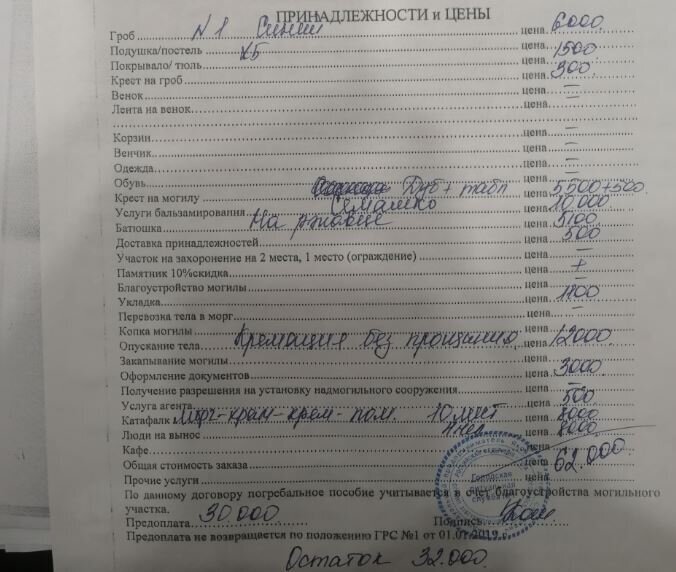 ПРИНАДЛЕЖНОСТИ и ЦЕНЫ
Гроб N 1 Синий цена 6000
Подушка/постель ХБ цена 1500
Покрывало/ тюль цена 300
Крест на гроб цена —
Венок цена —
Лента на венок цена
Корзин цена —
Венчик цена —
Одежда цена —
Обувь цена —
Крест на могилу Дуб + табл цена 5500+500
Услуги бальзамирования Семашко цена 10.000
Батюшка На цена 5100
Доставка принадлежностей цена 500
Участок на захоронение на 2 места, 1 место (ограждение) цена —
Памятник 10%скидка цена +
Благоустройство могилы цена —
Укладка цена
Перевозка тела в морг цена —
Копка могилы цена
Опускание тела Кремация без прощания цена 12000
Закапывание могилы цена
Оформление документов цена 3000
Получение разрешения на установку надмогильного сооружения цена —
Услуга агента цена 500
Катафалк Морг-храм-крем-пом. 10 мест цена 8000
Люди на вынос 4 чел цена 8000
Кафе цена
Общая стоимость заказа цена 62.000
Прочие услуги цена
По данному договору погребальное пособие учитывается в счет благоустройства могильного
участка.
Предоплата 30000 Подпись
Предоплата не возвращается по положению ГРС №1 от 01.01.2019 г.
Остаток 32.000.